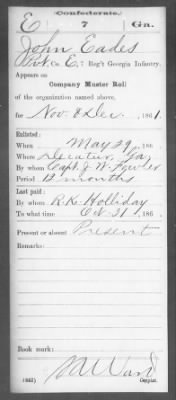 Confederate.
E 7 Ga.
John Eades
Pvt, Co. E, 7 Reg't Georgia Infantry.
Appears on
Company Muster Roll
of the organization named above,
for Nov & Dec, 1861.
Enlisted:
When May 29, 186 .
Where Decatur, Ga
By whom Capt. J. W. Fowler
Period 12 months
Last paid:
By whom R. K. Holliday
To what time Oct 31, 186 .
Present or absent Present
Remarks:
Book mark:
(642) Copyist.